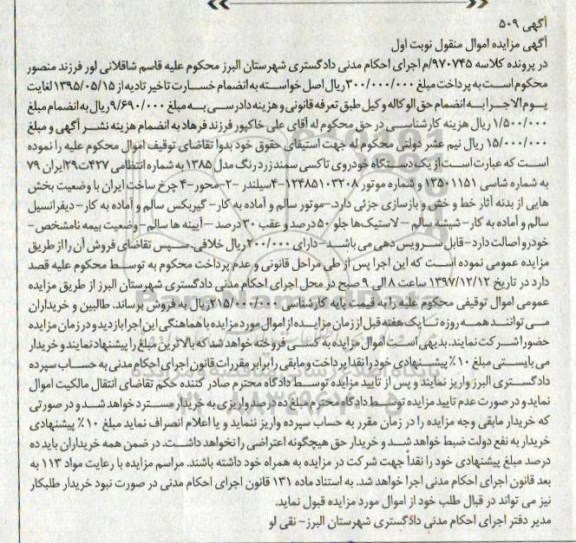 آگهی ۵۰۹
آگهی مزایده اموال منقول نوبت اول
در پرونده کلاسه ۹۷۰۷۴۵/م اجرای احکام مدنی دادگستری شهرستان البرز محکوم علیه قاسم شاقلانی لور فرزند منصور
محکوم است به پرداخت مبلغ ۳۰۰/۰۰۰/۰۰۰ ریال اصل خواسته به انضمام خسارت تاخیر تادیه از ۱۳۹۵/۰۵/۱۵ لغایت
یوم الاجرا به انضمام حق الوکاله وکیل طبق تعرفه قانونی و هزینه دادرسی به مبلغ ۹/۶۹۰/۰۰۰ ریال به انضمام مبلغ
۱/۵۰۰/۰۰۰ ریال هزینه کارشناسی در حق محکوم له آقای علی خاکپور فرزند فرهاد به انضمام هزینه نشر آگهی و مبلغ
۱۵/۰۰۰/۰۰۰ ریال نیم عشر دولتی محکوم له جهت استیفای حقوق خود بدوا تقاضای توقیف اموال محکوم علیه را نموده
است که عبارت است از یک دستگاه خودروی تاکسی سمند زرد رنگ مدل ۱۳۸۵ به شماره انتظامی ۴۲۷ت۲۹ایران ۷۹
به شماره شاسی ۱۳۵۰۱۱۵۱ و شماره موتور ۱۲۴۸۵۱۰۳۲۰۸-۴سیلندر -۲-محور-۴ چرخ ساخت ایران با وضعیت بخش
هایی از بدنه آثار خط و خش و بازسازی جزئی دارد.-موتور سالم و آماده به کار- گیربکس سالم و آماده به کار- دیفرانسیل
سالم و آماده به کار- شیشه سالم - لاستیک‌ها جلو ۵۰ درصد و عقب ۳۰ درصد - آیینه ها سالم - وضعیت بیمه نامشخص-
خودرو اصالت دارد - قابل سرویس دهی می باشد- دارای ۲۰۰/۰۰۰ ریال خلافی. سپس تقاضای فروش آن را از طریق
مزایده عمومی نموده است که این اجرا پس از طی مراحل قانونی و عدم پرداخت محکوم به توسط محکوم علیه قصد
دارد در تاریخ ۱۳۹۷/۱۲/۱۲ ساعت ۸ الی ۹ صبح در محل اجرای احکام مدنی دادگستری شهرستان البرز از طریق مزایده
عمومی اموال توقیفی محکوم علیه را به قیمت پایه کارشناسی ۲۱۵/۰۰۰/۰۰۰ ریال به فروش برساند. طالبین و خریداران
می توانند همه روزه تا یک هفته قبل از زمان مزایده از اموال مورد مزایده با هماهنگی این اجرا بازدید و در زمان مزایده
حضورا شرکت نمایند. بدیهی است اموال مزایده به کسی فروخته خواهد شد که بالاترین مبلغ را پیشنهاد نمایند و خریدار
می بایستی مبلغ ۱۰٪ پیشنهادی خود را نقدا پرداخت و مابقی را برابر مقررات قانون اجرای احکام مدنی به حساب سپرده
دادگستری البرز واریز نمایند و پس از تایید مزایده توسط دادگاه محترم صادر کننده حکم تقاضای انتقال مالکیت اموال
نماید و در صورت عدم تایید مزایده توسط دادگاه محترم مبلغ ده درصد واریزی به خریدار مسترد خواهد شد و در صورتی
که خریدار مابقی وجه مزایده را در زمان مقرر به حساب سپرده واریز ننماید و یا اعلام انصراف نماید مبلغ ۱۰٪ پیشنهادی
خریدار به نفع دولت ضبط خواهد شد و خریدار حق هیچگونه اعتراضی را نخواهد داشت. در ضمن همه خریداران باید ده
درصد مبلغ پیشنهادی خود را نقداً جهت شرکت در مزایده به همراه خود داشته باشند. مراسم مزایده با رعایت مواد ۱۱۳ به
بعد قانون اجرای احکام مدنی اجرا خواهد شد. به استناد ماده ۱۳۱ قانون اجرای احکام مدنی در صورت نبود خریدار طلبکار
نیز می تواند در قبال طلب خود از اموال مورد مزایده قبول نماید.
مدیر دفتر اجرای احکام مدنی دادگستری شهرستان البرز- نقی لو